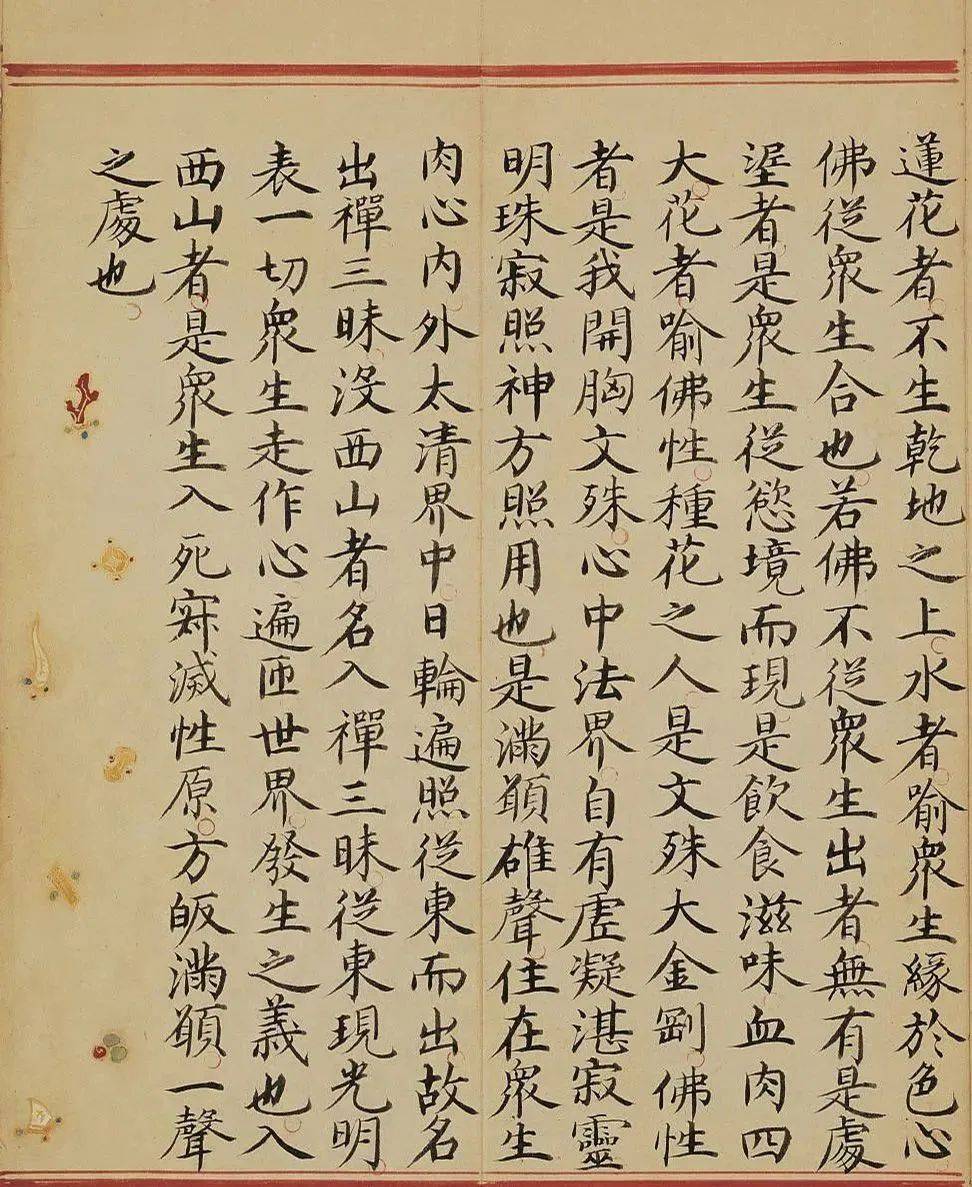 蓮花者不生乾地之上水者喻衆生緣於色心
佛從衆生合也若佛不從衆生出者無有是處
埿者是衆生從慾境而現是飲食滋味血肉四
大花者喻佛性種花之人是文殊大金剛佛性
者是我開胸文殊心中法界自有虛凝湛寂靈
明珠寂照神方照用也是滿願碓聲住在衆生
肉心內外太清界中日輪遍照從東而出故名
出禪三昧沒西山者名入禪三昧從東現光明
表一切衆生走作心遍匝世界發生之義也入
西山者是衆生入死寂滅性原方皈滿願一聲
之處也